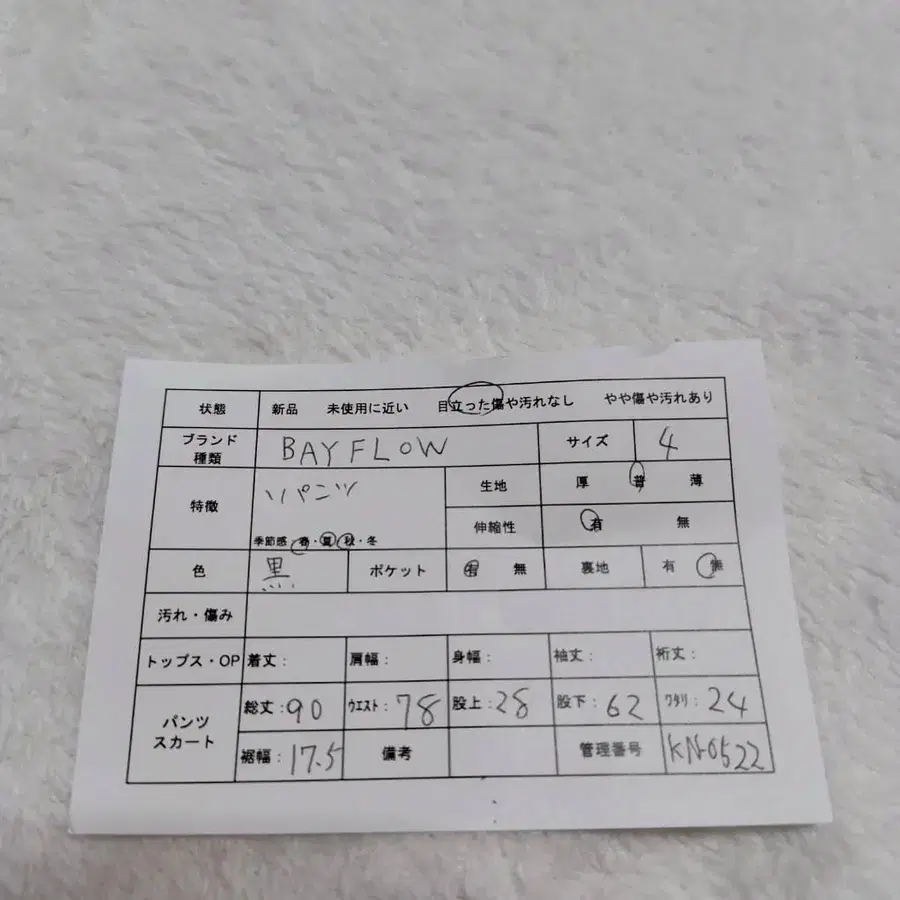 状態 新品 未使用に近い 目立った傷や汚れなし やや傷や汚れあり
ブランド 種類 BAYFLOW サイズ 4
特徴 パンツ 生地 厚 普 薄
季節感 春・夏・秋・冬 伸縮性 有 無
色 黒 ポケット 有 無 裏地 有 無
汚れ・傷み
トップス・OP 着丈: 肩幅: 身幅: 袖丈: 裄丈:
パンツ スカート 総丈:90 ウエスト:78 股上:28 股下:62 ワタリ:24
裾幅:17.5 備考 管理番号 KN-0522